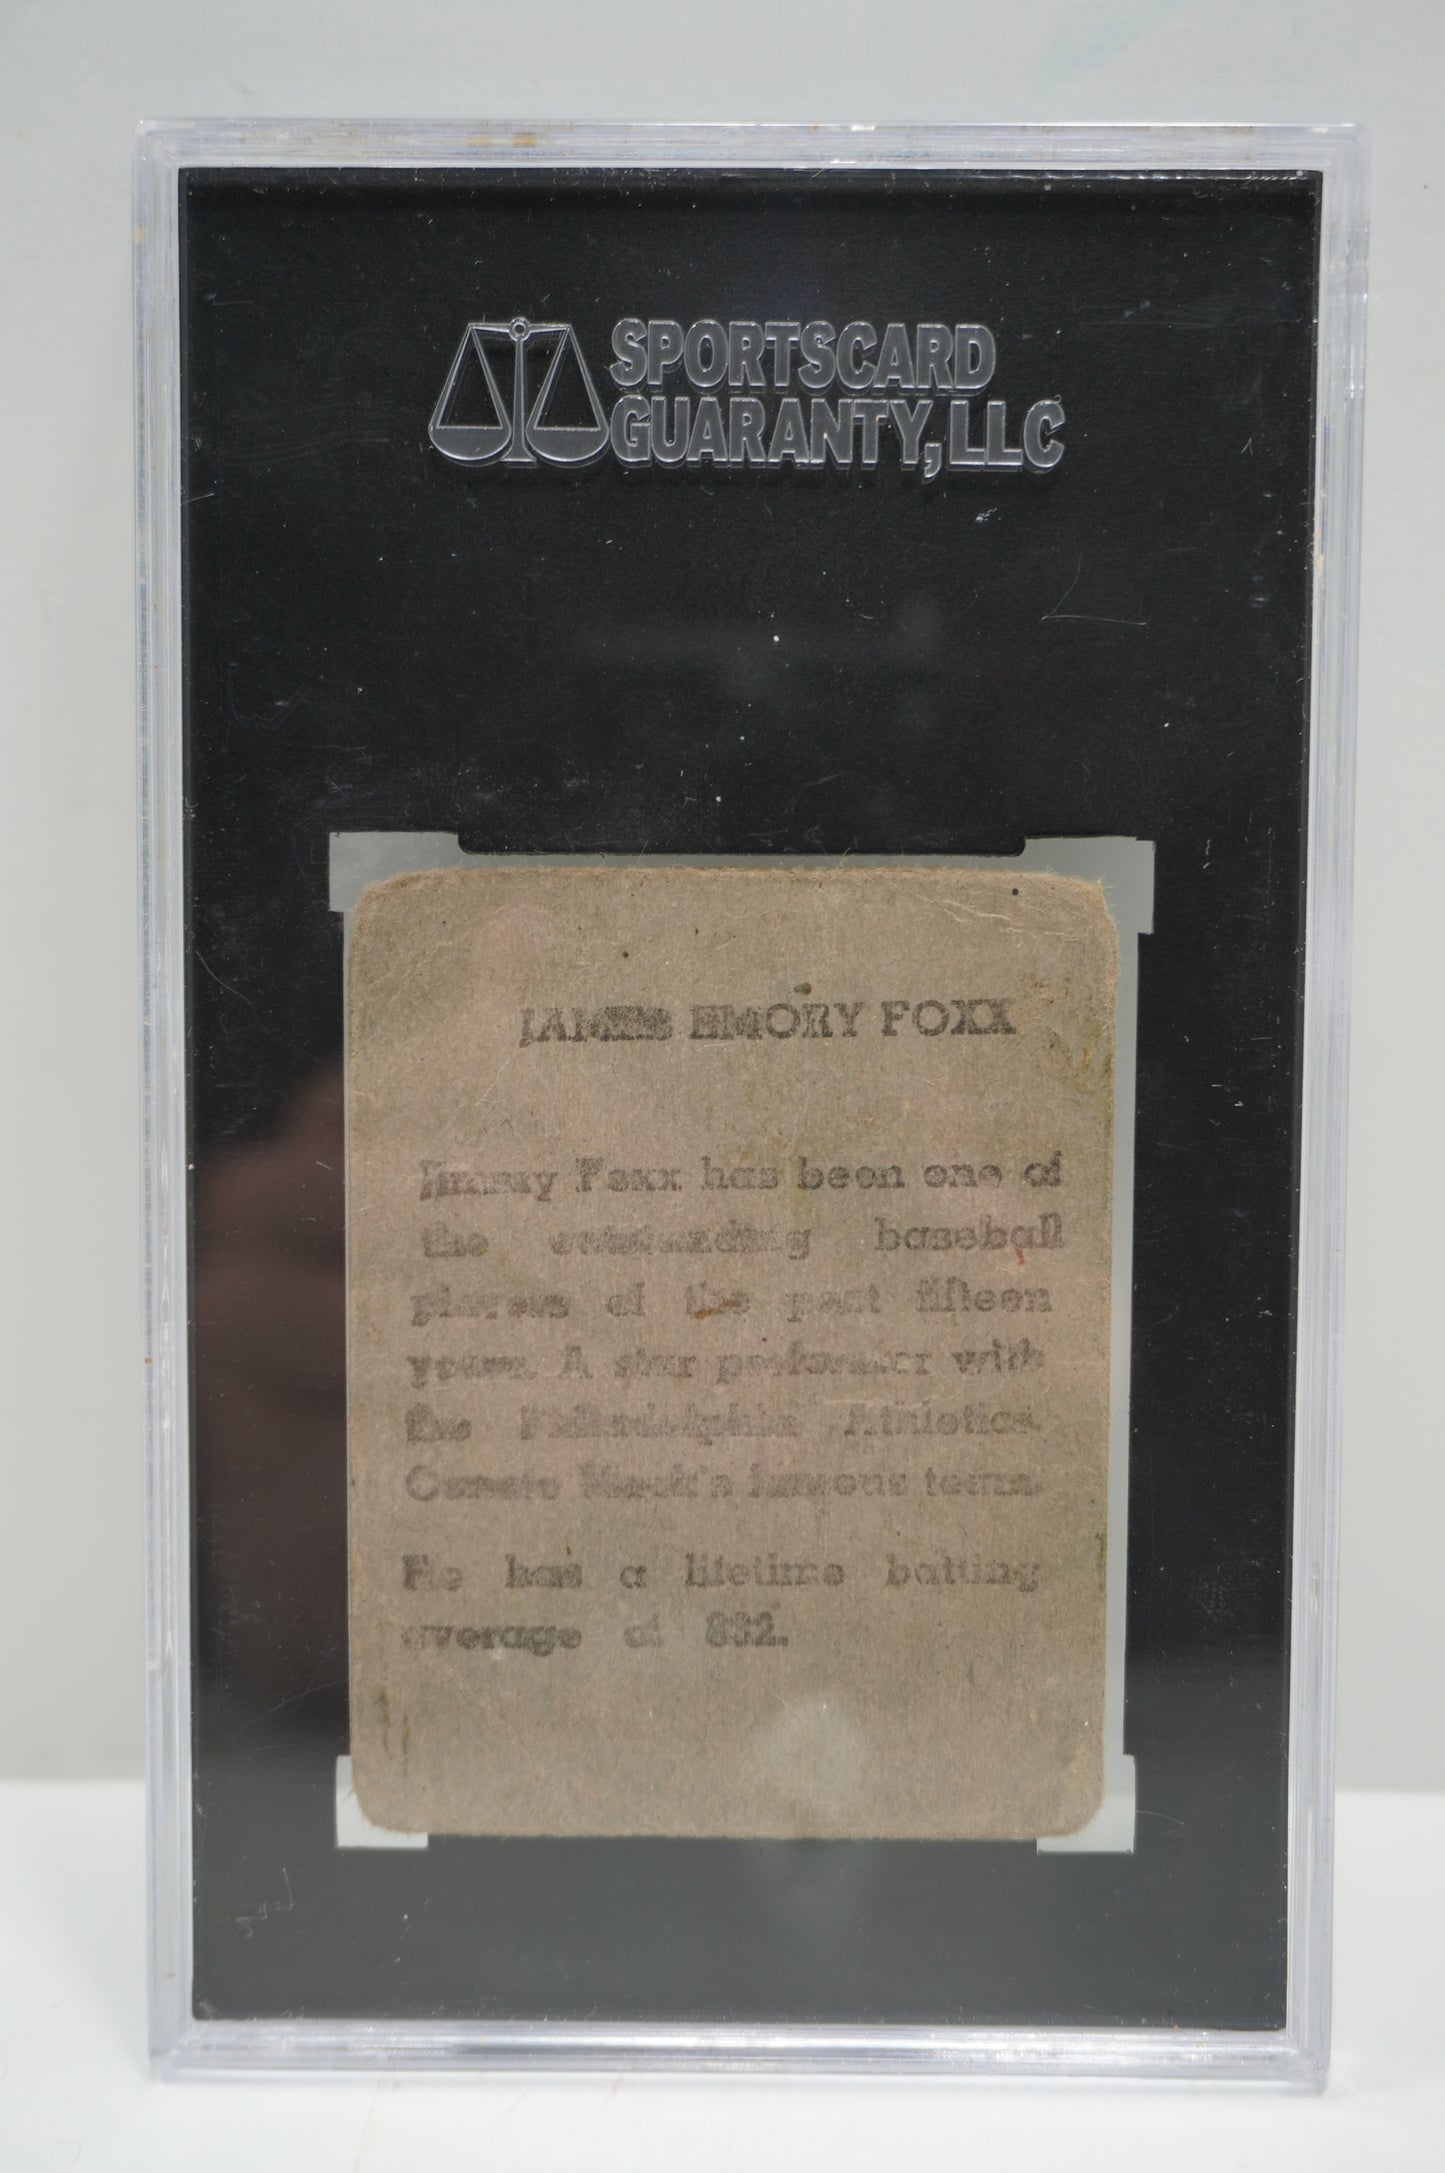 SPORTSCARD
GUARANTY, LLC
JAMES EMORY FOXX
Jimmy Foxx has been one of
the outstanding baseball
players of the past fifteen
years. A star performer with
the Philadelphia Athletics.
Connie Mack's famous team.
He has a lifetime batting
average of 332.